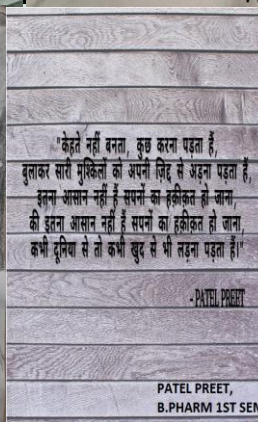 "केहते नहीं बनता, कुछ करना पड़ता हैं,
बुलाकर सारी मुश्किलों को अपनी ज़िद्द से अडना पड़ता हैं,
इतना आसान नहीं हैं सपनों का हक़ीक़त हो जाना,
की इतना आसान नहीं हैं सपनों का हक़ीक़त हो जाना,
कभी दुनिया से तो कभी खुद से भी लड़ना पड़ता हैं।"
- PATEL PREET
PATEL PREET,
B.PHARM 1ST SEM